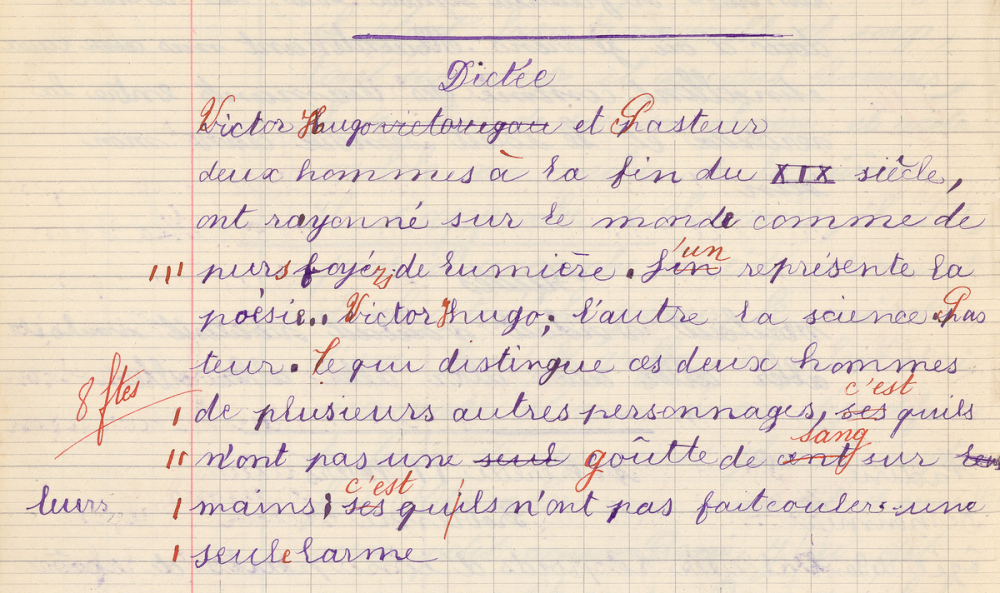 Dictée
Victor Hugo victorugau et Pasteur
deux hommes à la fin du XIX siècle,
ont rayonné sur le monde comme de
purs foyézs de lumière. l'un l'in représente la
poèsie.. Victor Hugo; l'autre la science Pas
teur. Ce qui distingue ces deux hommes
8 ftes
de plusieurs autres personnages, c'est ses quils
n'ont pas une seul goûtte de sang ent sur leus
leurs mains; c'est ses qu'ils n'ont pas fait couler une
seule larme